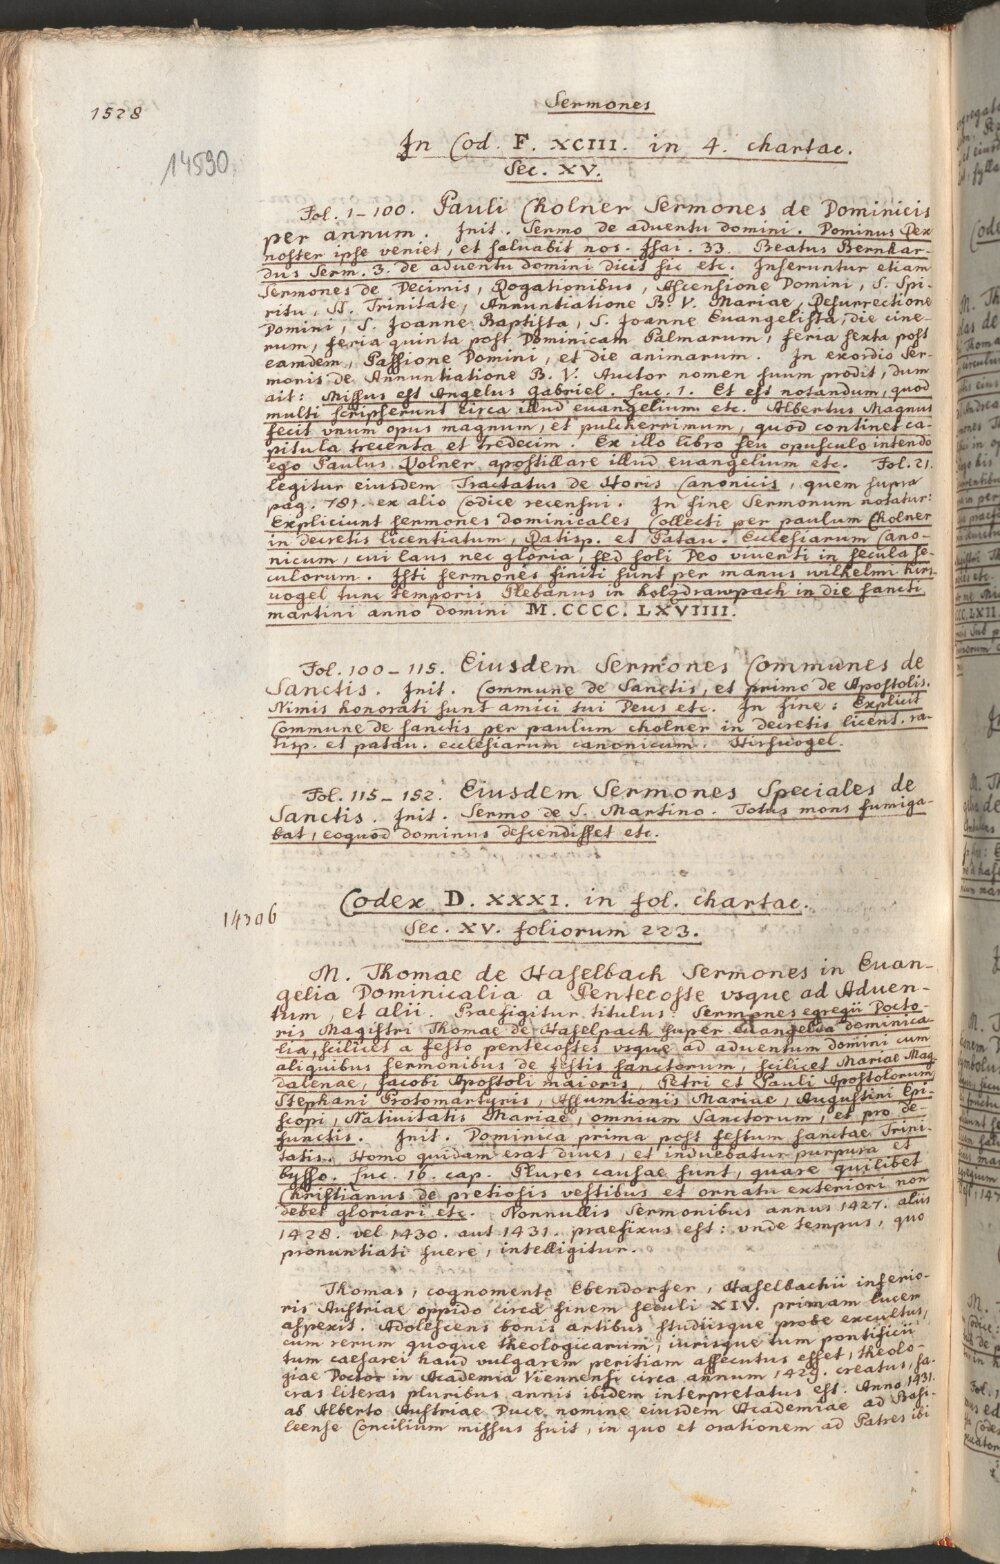 1528
Sermones
14590
In Cod. F. XCIII. in 4. chartac.
Sec. XV.
Fol. 1-100. Pauli Cholner Sermones de Dominicis
per annum. Init. Sermo de aduentu domini. Dominus Rex
noster ipse veniet, et saluabit nos. Isai. 33. Beatus Bernhar-
dus Serm. 3. de aduentu domini dicit sic etc. Inseruntur etiam
Sermones de Decimis, Rogationibus, Ascensione Domini, S. Spi-
ritu, SS. Trinitate, Annuntiatione B. V. Mariae, Resurrectione
Domini, S. Joanne Baptista, S. Joanne Euangelista, die cine-
rum, feria quinta post Dominicam Palmarum, feria sexta post
eamdem, Passione Domini, et die animarum. In exordio Ser-
monis de Annuntiatione B. V. Auctor nomen suum prodit, dum
ait: Missus est Angelus Gabriel. Luc. 1. Et est notandum, quod
multi scripserunt circa illud euangelium etc. Albertus Magnus
fecit vnum opus magnum, et pulcherrimum, quod continet ca-
pitula trecenta et tredecim. Ex illo libro seu opusculo intendo
ego Paulus Kolner apostillare illud euangelium etc. Fol. 21.
legitur eiusdem Tractatus de Horis Canonicis, quem supra
pag. 781. ex alio Codice recensui. In fine Sermonum notatur:
Expliciunt sermones dominicales Collecti per paulum Cholner
in decretis licentiatum, Ratisp. et Patau. Ecclesiarum Cano-
nicum, cui laus nec gloria, sed soli Deo viuenti in secula se-
culorum. Isti sermones finiti sunt per manus wilhelmi hirs-
uogel tunc temporis Plebanus in holzdrawpach in die sancti
martini anno domini M.CCCC.LXVIIII.
Fol. 100-115. Eiusdem Sermones Communes de
Sanctis. Init. Commune de Sanctis, et primo de Apostolis.
Nimis honorati sunt amici tui Deus etc. In fine: Explicit
Commune de sanctis per paulum cholner in decretis licent. ra-
tisp. et patau. ecclesiarum canonicum. Hirsuogel.
Fol. 115-152. Eiusdem Sermones Speciales de
Sanctis. Init. Sermo de S. Martino. Totus mons fumiga-
bat, eoquod dominus descendisset etc.
14306
Codex D. XXXI. in fol. chartac.
Sec. XV. foliorum 223.
M. Thomae de Haselbach Sermones in Euan-
gelia Dominicalia a Pentecoste vsque ad Aduen-
tum, et alii. Praefigitur titulus: Sermones egregii Docto-
ris Magistri Thomae de Haselpach super Euangelia dominica-
lia, scilicet a festo pentecostes vsque ad aduentum domini cum
aliquibus sermonibus de festis sanctorum, scilicet Mariae Mag-
dalenae, Jacobi Apostoli maioris, Petri et Pauli Apostolorum,
Stephani Protomartyris, Assumtionis Mariae, Augustini Epi-
scopi, Natiuitatis Mariae, omnium Sanctorum, et pro de-
functis. Init. Dominica prima post festum sanctae Trini-
tatis. Homo quidam erat diues, et induebatur purpura et
bysso. Luc. 16. cap. Plures causae sunt, quare quilibet
Christianus de pretiosis vestibus et ornatu exteriori non
debet gloriari etc. Nonnullis Sermonibus annus 1427. aliis
1428. vel 1430. aut 1431. praefixus est: vnde tempus, quo
pronuntiati fuere, intelligitur.
Thomas, cognomento Ebendorfer, Haselbachii inferio-
ris Austriae oppido circa finem seculi XIV. primam lucem
aspexit. Adolescens bonis artibus studiisque probe excultus,
cum rerum quoque theologicarum, iurisque tum pontificii
tum caesarei haud vulgarem peritiam assecutus esset, theolo-
giae Doctor in Academia Viennensi circa annum 1429. creatus, sa-
cras literas pluribus annis ibidem interpretatus est. Anno 1431.
ab Alberto Austriae Duce nomine eiusdem Academiae ad Basi-
leense Concilium missus fuit, in quo et orationem ad Patres ibi